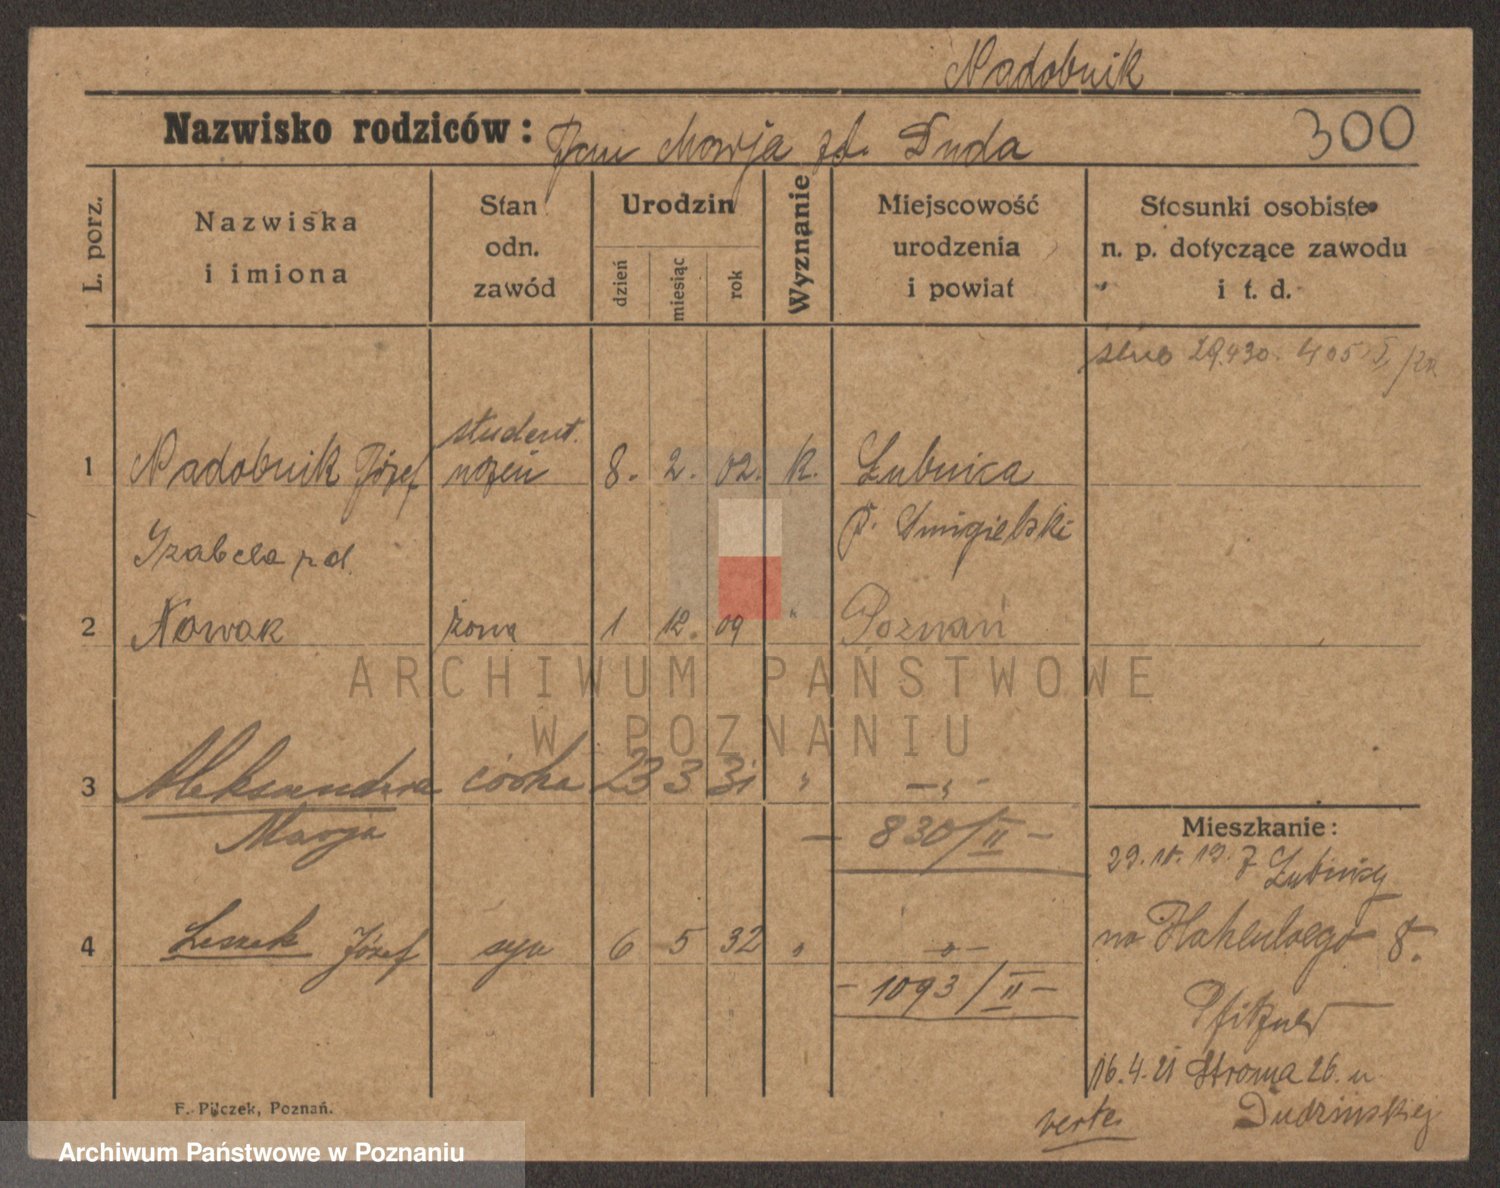 Nadobnik
Nazwisko rodziców: Jan Marja zd. Duda 300
L. porz.
Nazwiska i imiona
Stan odn. zawód
Urodzin
dzień miesiąc rok
Wyznanie
Miejscowość urodzenia i powiat
Stosunki osobiste n. p. dotyczące zawodu i t. d.
29.4.30. 405
student.
1 Nadobnik Józef uczeń 8. 2. 02. k. Łubnica
p. Śmigielski
Izabela zd.
2 Nowak żona 1 12. 09 " Poznań
ARCHIWUM PAŃSTWOWE
W POZNANIU
3 Aleksandra córka 23 3 31 " — " —
Marja — 830/II —
4 Leszek Józef syn 6 5 32 " — " —
— 1093/II —
Mieszkanie:
29. 10. 19. z Łubnicy
na 8.
Pfitzner
16.4.21 Stroma 26. u
Dudzińskiej
verte
F. Pilczek, Poznań.
Archiwum Państwowe w Poznaniu